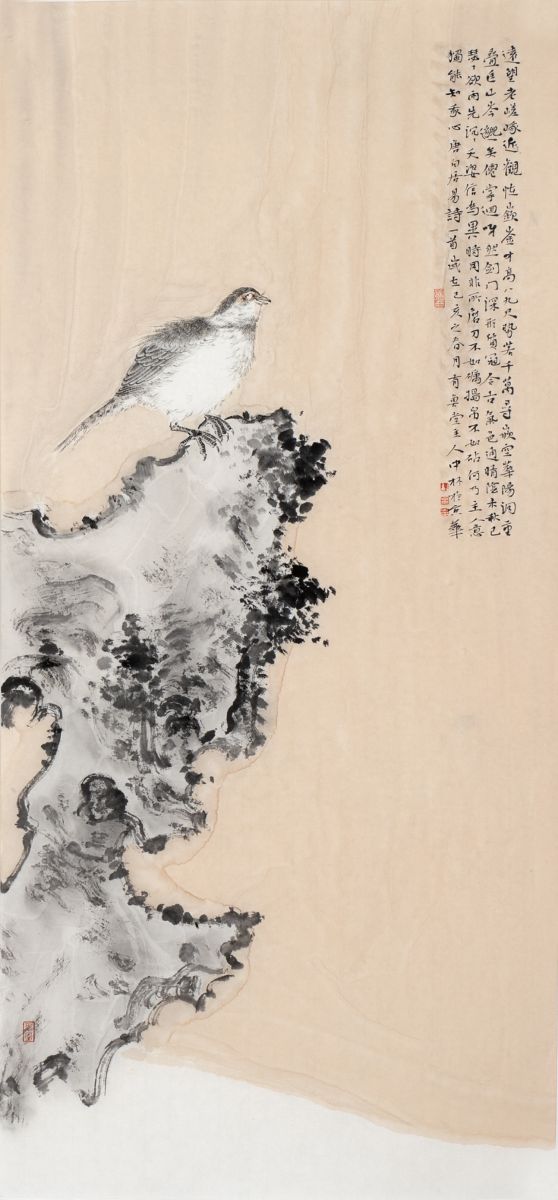 遠望老嵯峨近觀恠嶔崟才高八九尺勢若千萬尋嵌空華陽洞重
叠匡山岑邈矣僊掌迥呀然剑门深形質冠今古氣色通晴陰未秋已
瑟々欲雨先沉々天姿信為異時用非所磨刀不如礪搗帛不如砧何乃主人意
獨能知我心唐白居易詩一首歲在己亥之春月堂主人中林於京華